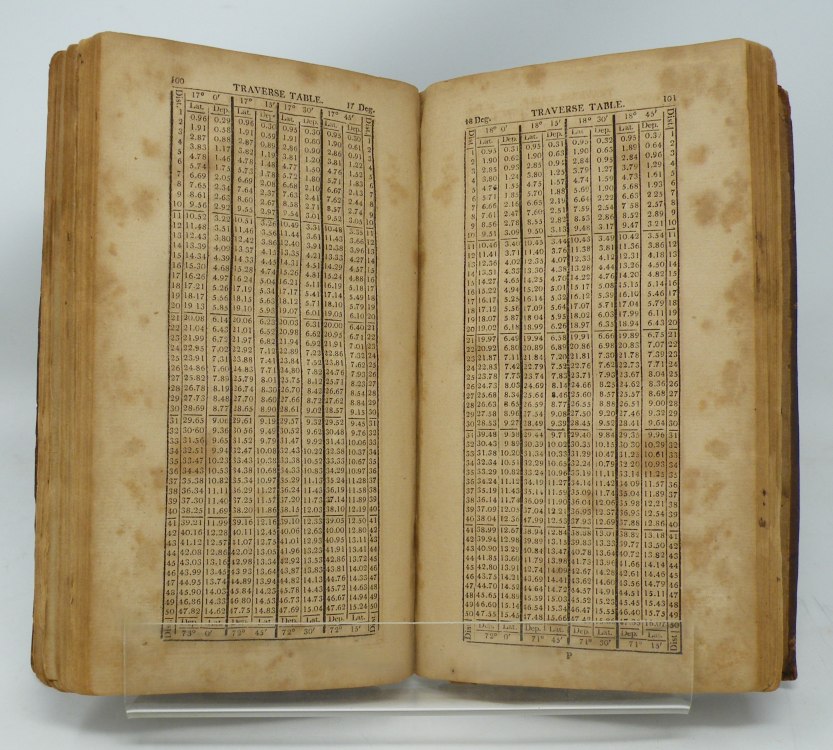 100
TRAVERSE TABLE.
17 Deg.
Dist 17° 0' 17° 15' 17° 30' 17° 45' Dist
Lat. Dep. Lat. Dep. Lat. Dep. Lat. Dep.
1 0.96 0.29 0.96 0.30 0.95 0.30 0.95 0.30 1
2 1.91 0.58 1.91 0.59 1.91 0.60 1.90 0.61 2
3 2.87 0.88 2.87 0.89 2.86 0.90 2.86 0.91 3
4 3.83 1.17 3.82 1.19 3.81 1.20 3.81 1.22 4
5 4.78 1.46 4.78 1.48 4.77 1.50 4.76 1.52 5
6 5.74 1.75 5.73 1.78 5.72 1.80 5.71 1.83 6
7 6.69 2.05 6.69 2.08 6.68 2.10 6.67 2.13 7
8 7.65 2.34 7.64 2.37 7.63 2.41 7.62 2.44 8
9 8.61 2.63 8.60 2.67 8.58 2.71 8.57 2.74 9
10 9.56 2.92 9.55 2.97 9.54 3.01 9.52 3.05 10
11 10.52 3.22 10.51 3.26 10.49 3.31 10.48 3.35 11
12 11.48 3.51 11.46 3.56 11.44 3.61 11.43 3.66 12
13 12.43 3.80 12.42 3.86 12.40 3.91 12.38 3.96 13
14 13.39 4.09 13.37 4.15 13.35 4.21 13.33 4.27 14
15 14.34 4.39 14.33 4.45 14.31 4.51 14.29 4.57 15
16 15.30 4.68 15.28 4.74 15.26 4.81 15.24 4.88 16
17 16.26 4.97 16.24 5.04 16.21 5.11 16.19 5.18 17
18 17.21 5.26 17.19 5.34 17.17 5.41 17.14 5.49 18
19 18.17 5.56 18.15 5.63 18.12 5.71 18.10 5.79 19
20 19.13 5.85 19.10 5.93 19.07 6.01 19.05 6.10 20
21 20.08 6.14 20.06 6.23 20.03 6.31 20.00 6.40 21
22 21.04 6.43 21.01 6.52 20.98 6.62 20.95 6.71 22
23 21.99 6.72 21.97 6.82 21.94 6.92 21.91 7.01 23
24 22.95 7.02 22.92 7.12 22.89 7.22 22.86 7.32 24
25 23.91 7.31 23.88 7.41 23.84 7.52 23.81 7.62 25
26 24.86 7.60 24.83 7.71 24.80 7.82 24.76 7.93 26
27 25.82 7.89 25.79 8.01 25.75 8.12 25.71 8.23 27
28 26.78 8.19 26.74 8.30 26.70 8.42 26.67 8.54 28
29 27.73 8.48 27.70 8.60 27.66 8.72 27.62 8.84 29
30 28.69 8.77 28.65 8.90 28.61 9.02 28.57 9.15 30
31 29.65 9.06 29.61 9.19 29.57 9.32 29.52 9.45 31
32 30.60 9.36 30.56 9.49 30.52 9.62 30.48 9.76 32
33 31.56 9.65 31.52 9.79 31.47 9.92 31.43 10.06 33
34 32.51 9.94 32.47 10.08 32.43 10.22 32.38 10.37 34
35 33.47 10.23 33.43 10.38 33.38 10.52 33.33 10.67 35
36 34.43 10.53 34.38 10.68 34.33 10.83 34.29 10.97 36
37 35.38 10.82 35.34 10.97 35.29 11.13 35.24 11.28 37
38 36.34 11.11 36.29 11.27 36.24 11.43 36.19 11.58 38
39 37.30 11.40 37.25 11.57 37.20 11.73 37.14 11.89 39
40 38.25 11.69 38.20 11.86 38.15 12.03 38.10 12.19 40
41 39.21 11.99 39.16 12.16 39.10 12.33 39.05 12.50 41
42 40.16 12.28 40.11 12.45 40.06 12.63 40.00 12.80 42
43 41.12 12.57 41.07 12.75 41.01 12.93 40.95 13.11 43
44 42.08 12.86 42.02 13.05 41.96 13.23 41.91 13.41 44
45 43.03 13.16 42.98 13.34 42.92 13.53 42.86 13.72 45
46 43.99 13.45 43.93 13.64 43.87 13.83 43.81 14.02 46
47 44.95 13.74 44.89 13.94 44.82 14.13 44.76 14.33 47
48 45.90 14.03 45.84 14.23 45.78 14.43 45.72 14.63 48
49 46.86 14.33 46.80 14.53 46.73 14.73 46.67 14.94 49
50 47.82 14.62 47.75 14.83 47.69 15.04 47.62 15.24 50
Dist Dep. Lat. Dep. Lat. Dep. Lat. Dep. Lat. Dist
73° 0' 72° 45' 72° 30' 72° 15'
18 Deg.
TRAVERSE TABLE.
101
Dist 18° 0' 18° 15' 18° 30' 18° 45' Dist
Lat. Dep. Lat. Dep. Lat. Dep. Lat. Dep.
1 0.95 0.31 0.95 0.31 0.95 0.32 0.95 0.32 1
2 1.90 0.62 1.90 0.63 1.90 0.63 1.89 0.64 2
3 2.85 0.93 2.85 0.94 2.84 0.95 2.84 0.96 3
4 3.80 1.24 3.80 1.25 3.79 1.27 3.79 1.29 4
5 4.76 1.55 4.75 1.57 4.74 1.59 4.73 1.61 5
6 5.71 1.85 5.70 1.88 5.69 1.90 5.68 1.93 6
7 6.66 2.16 6.65 2.19 6.64 2.22 6.63 2.25 7
8 7.61 2.47 7.60 2.51 7.59 2.54 7.58 2.57 8
9 8.56 2.78 8.55 2.82 8.53 2.86 8.52 2.89 9
10 9.51 3.09 9.50 3.13 9.48 3.17 9.47 3.21 10
11 10.46 3.40 10.45 3.44 10.43 3.49 10.42 3.54 11
12 11.41 3.71 11.40 3.76 11.38 3.81 11.36 3.86 12
13 12.36 4.02 12.35 4.07 12.33 4.12 12.31 4.18 13
14 13.31 4.33 13.30 4.38 13.28 4.44 13.26 4.50 14
15 14.27 4.65 14.25 4.70 14.22 4.76 14.20 4.82 15
16 15.22 4.94 15.20 5.01 15.17 5.08 15.15 5.14 16
17 16.17 5.25 16.14 5.32 16.12 5.39 16.10 5.46 17
18 17.12 5.56 17.09 5.64 17.07 5.71 17.04 5.79 18
19 18.07 5.87 18.04 5.95 18.02 6.03 17.99 6.11 19
20 19.02 6.18 18.99 6.26 18.97 6.35 18.94 6.43 20
21 19.97 6.49 19.94 6.58 19.91 6.66 19.89 6.75 21
22 20.92 6.80 20.89 6.89 20.86 6.98 20.83 7.07 22
23 21.87 7.11 21.84 7.20 21.81 7.30 21.78 7.39 23
24 22.83 7.42 22.79 7.52 22.76 7.62 22.73 7.71 24
25 23.78 7.73 23.74 7.83 23.71 7.93 23.67 8.04 25
26 24.73 8.03 24.69 8.14 24.66 8.25 24.62 8.36 26
27 25.68 8.34 25.64 8.46 25.60 8.57 25.57 8.68 27
28 26.63 8.65 26.59 8.77 26.55 8.88 26.51 9.00 28
29 27.58 8.96 27.54 9.08 27.50 9.20 27.46 9.32 29
30 28.53 9.27 28.49 9.39 28.45 9.52 28.41 9.64 30
31 29.48 9.58 29.44 9.71 29.40 9.84 29.35 9.96 31
32 30.43 9.89 30.39 10.02 30.35 10.15 30.30 10.29 32
33 31.38 10.20 31.34 10.33 31.29 10.47 31.25 10.61 33
34 32.34 10.51 32.29 10.65 32.24 10.79 32.20 10.93 34
35 33.29 10.82 33.24 10.96 33.19 11.11 33.14 11.25 35
36 34.24 11.12 34.19 11.27 34.14 11.42 34.09 11.57 36
37 35.19 11.43 35.14 11.59 35.09 11.74 35.04 11.89 37
38 36.14 11.74 36.09 11.90 36.04 12.06 35.98 12.21 38
39 37.09 12.05 37.04 12.21 36.98 12.37 36.93 12.54 39
40 38.04 12.36 37.99 12.53 37.93 12.69 37.88 12.86 40
41 38.99 12.67 38.94 12.84 38.88 13.01 38.82 13.18 41
42 39.94 12.98 39.89 13.15 39.83 13.33 39.77 13.50 42
43 40.90 13.29 40.84 13.47 40.78 13.64 40.72 13.82 43
44 41.85 13.60 41.79 13.78 41.73 13.96 41.66 14.14 44
45 42.80 13.91 42.74 14.09 42.67 14.28 42.61 14.46 45
46 43.75 14.21 43.69 14.41 43.62 14.60 43.56 14.79 46
47 44.70 14.52 44.64 14.72 44.57 14.91 44.51 15.11 47
48 45.65 14.83 45.59 15.03 45.52 15.23 45.45 15.43 48
49 46.60 15.14 46.54 15.35 46.47 15.55 46.40 15.75 49
50 47.55 15.45 47.48 15.66
Dist Dep. Lat. Dep. Lat. Dep. Lat. Dep. Lat. Dist
72° 0' 71° 45' 71° 30' 71° 15'
P